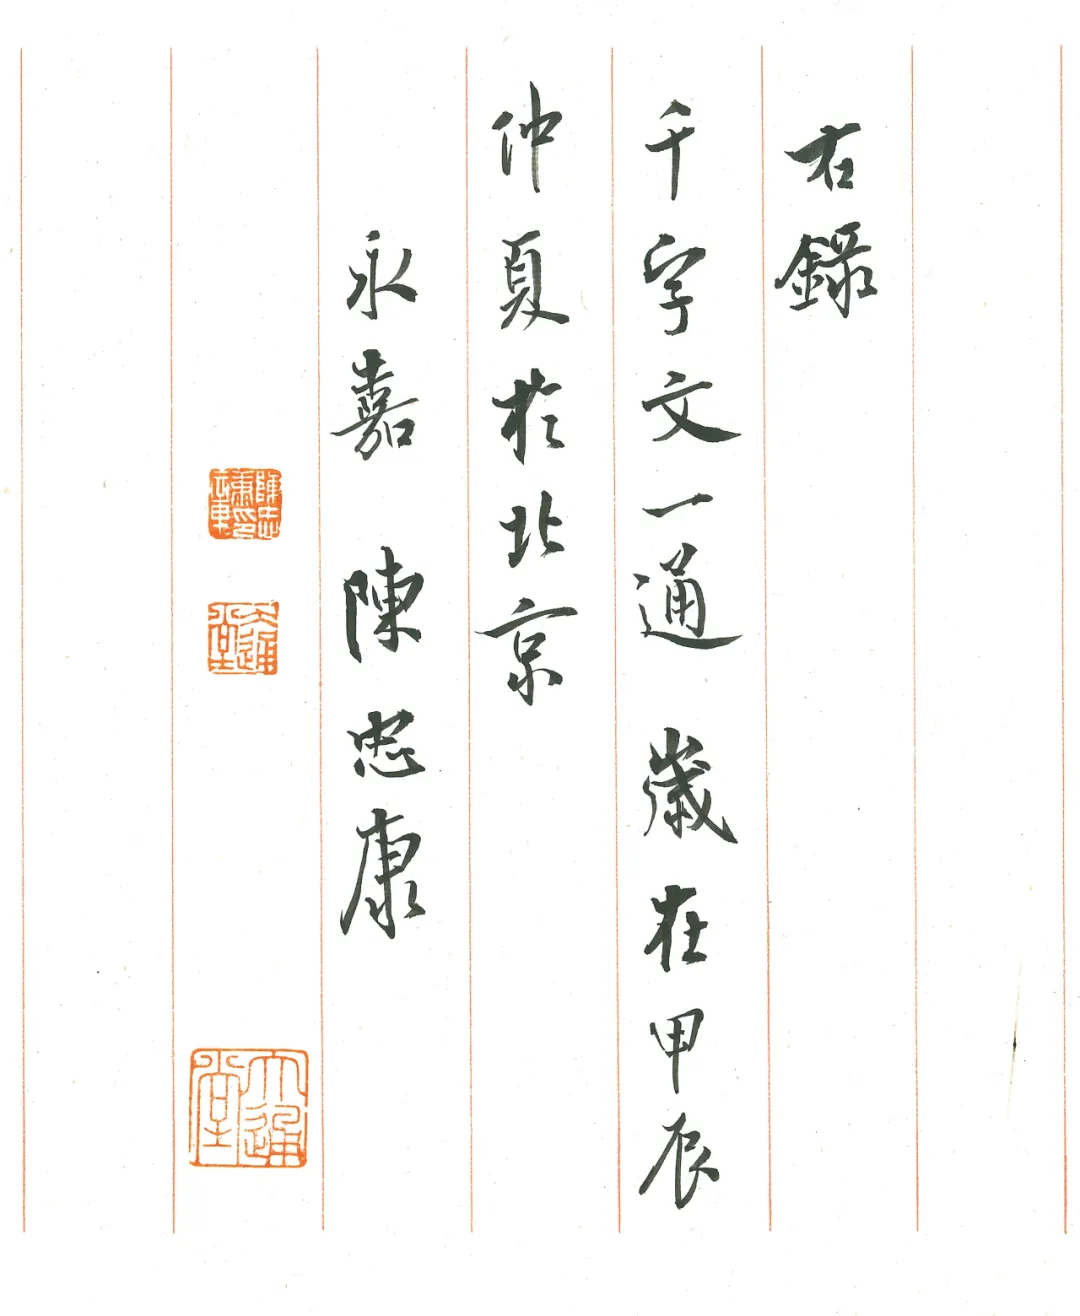 右錄
千字文一通 歲在甲辰
仲夏於北京
永嘉 陳忠康
大通堂
大通堂